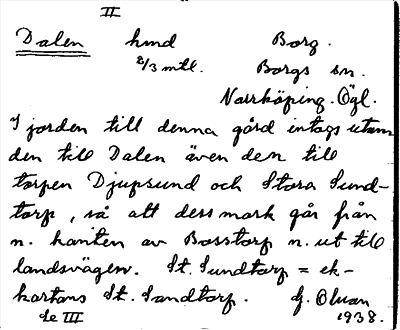 II
Dalen hmd Borg.
2/3 mtl. Borgs sn.
Norrköping. Ögl.
I jorden till denna gård intags utom
den till Dalen även den till
torpen Djupsund och Stora Sund-
torp, så att dess mark går från
n. kanten av Bosstorp n. ut till
landsvägen. St. Sundtorp = ek-
kartans St. Sandtorp. G. Olson
Se III 1938.